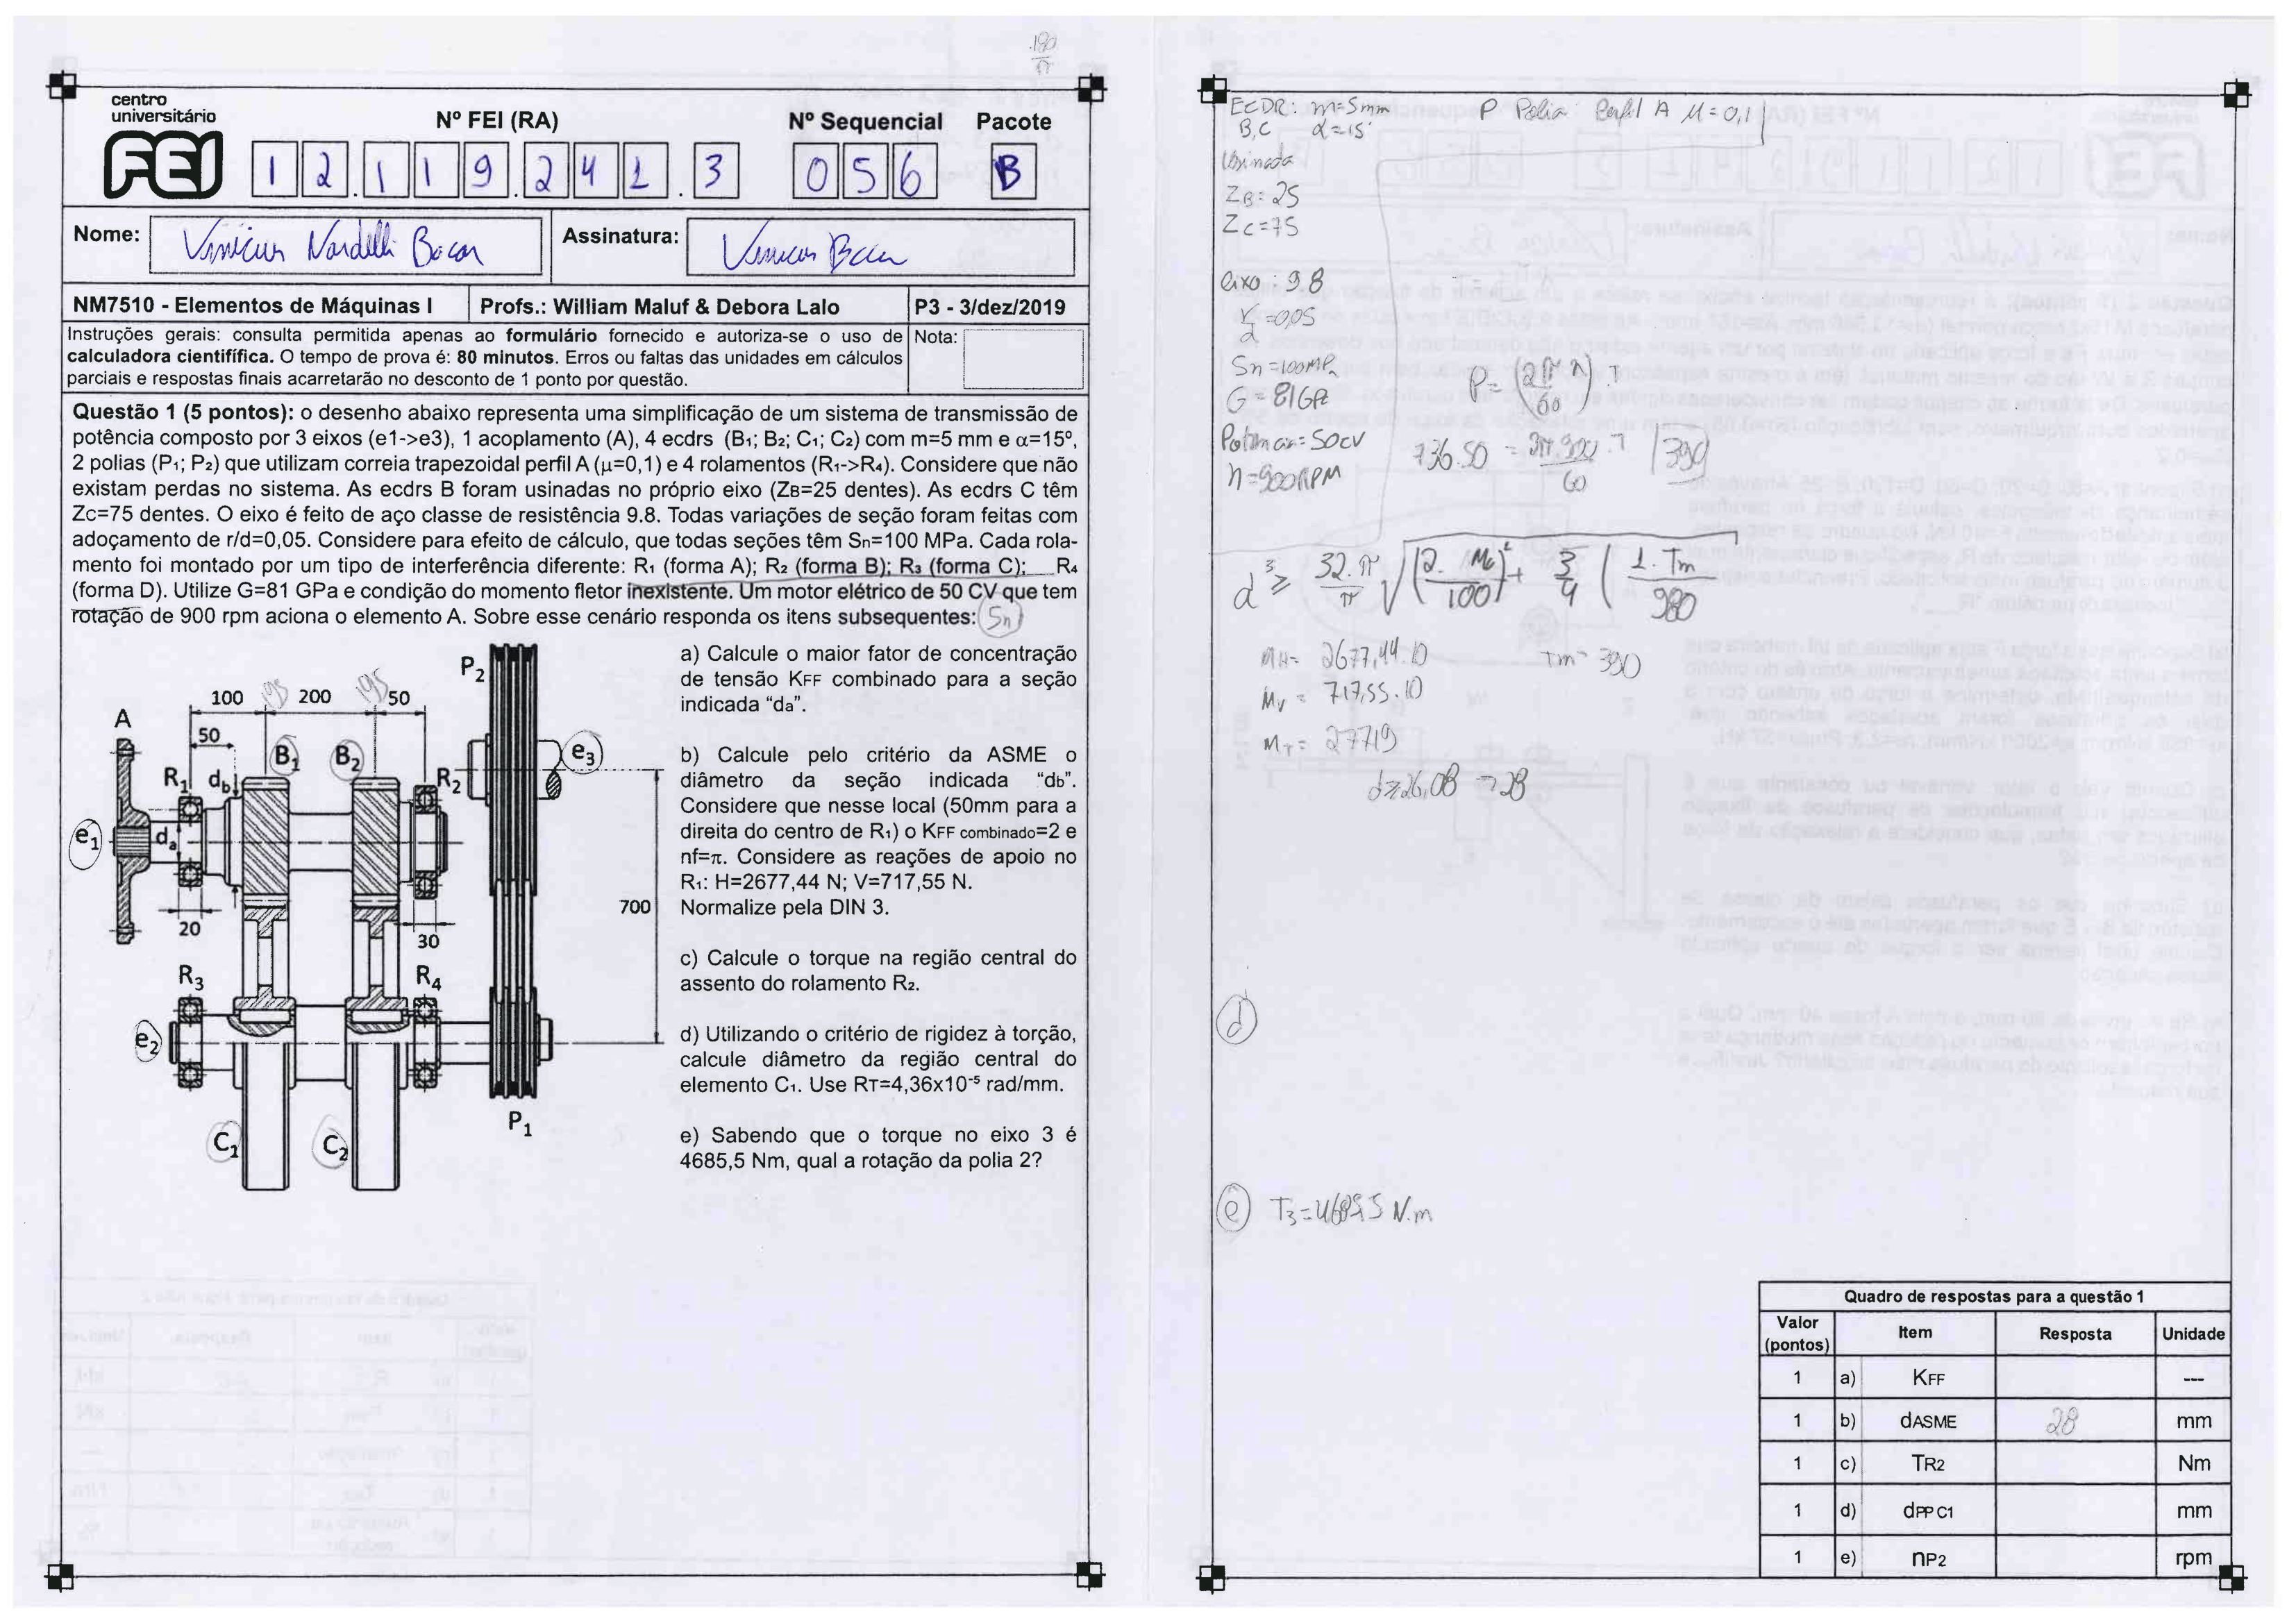 190
π
centro
universitário
FEI
Nº FEI (RA)
Nº Sequencial
Pacote
1 2 . 1 1 9 . 2 4 1 . 3
0 5 6
B
Nome:
Vinicius Nardelli Bocar
Assinatura:
NM7510 - Elementos de Máquinas I
Profs.: William Maluf & Debora Lalo
P3 - 3/dez/2019
Instruções gerais: consulta permitida apenas ao formulário fornecido e autoriza-se o uso de
calculadora cientifífica. O tempo de prova é: 80 minutos. Erros ou faltas das unidades em cálculos
parciais e respostas finais acarretarão no desconto de 1 ponto por questão.
Nota:
Questão 1 (5 pontos): o desenho abaixo representa uma simplificação de um sistema de transmissão de
potência composto por 3 eixos (e1->e3), 1 acoplamento (A), 4 ecdrs (B1; B2; C1; C2) com m=5 mm e α=15º,
2 polias (P1; P2) que utilizam correia trapezoidal perfil A (μ=0,1) e 4 rolamentos (R1->R4). Considere que não
existam perdas no sistema. As ecdrs B foram usinadas no próprio eixo (ZB=25 dentes). As ecdrs C têm
Zc=75 dentes. O eixo é feito de aço classe de resistência 9.8. Todas variações de seção foram feitas com
adoçamento de r/d=0,05. Considere para efeito de cálculo, que todas seções têm Sn=100 MPa. Cada rola-
mento foi montado por um tipo de interferência diferente: R1 (forma A); R2 (forma B); R3 (forma C); R4
(forma D). Utilize G=81 GPa e condição do momento fletor inexistente. Um motor elétrico de 50 CV que tem
rotação de 900 rpm aciona o elemento A. Sobre esse cenário responda os itens subsequentes:
Sn
100
195
200
195
50
A
50
B1
B2
P2
e3
R1
db
R2
e1
da
20
30
700
R3
R4
e2
C1
C2
P1
a) Calcule o maior fator de concentração
de tensão KFF combinado para a seção
indicada "da".
b) Calcule pelo critério da ASME o
diâmetro da seção indicada "db".
Considere que nesse local (50mm para a
direita do centro de R1) o KFF combinado=2 e
nf=π. Considere as reações de apoio no
R1: H=2677,44 N; V=717,55 N.
Normalize pela DIN 3.
c) Calcule o torque na região central do
assento do rolamento R2.
d) Utilizando o critério de rigidez à torção,
calcule diâmetro da região central do
elemento C1. Use RT=4,36x10⁻⁵ rad/mm.
e) Sabendo que o torque no eixo 3 é
4685,5 Nm, qual a rotação da polia 2?
ECDR: m=5mm
B,C α=15°
P Polia: Perfil A μ=0,1
Usinada
ZB=25
ZC=75
eixo: 9.8
r/d=0,05
Sn=100MPa
G=81GPa
Potencia=50cv
n=900RPM
P=(2πn/60).T
736.50 = 2π.900.T/60
390
d³ ≥ 32.π/π √(2.Mc/100)²+ 3/4 (1.Tm/980
MH= 2677,44.10
MV= 717,55.10
MT= 27719
Tm=390
d≥26,08 → 28
d
e T3=4685,5 N.m
Quadro de respostas para a questão 1
Valor (pontos) Item Resposta Unidade
1 a) KFF ---
1 b) dASME 28 mm
1 c) TR2 Nm
1 d) dPP C1 mm
1 e) nP2 rpm